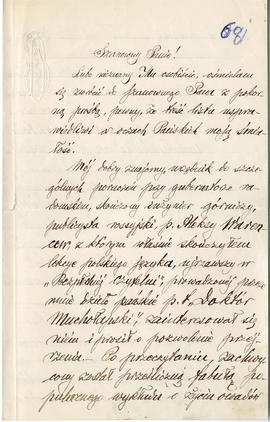 68
Szanowny Panie!
Lubo nieznany Mu osobiście, ośmielam
się zwrócić do szanownego Pana z pokor-
ną prośbą, pewny, że treść listu uspra-
wiedliwi w oczach Pańskich moją śmia-
łość.
Mój dobry znajomy, urzędnik do szcze-
gólnych poruczeń przy gubernatorze ra-
domskim, skończony inżynier górniczy,
publicysta rosyjski, p. Aleksy
z którym właśnie skończyłem
lekcye polskiego języka, ujrzawszy w
"Bezpłatnej Czytelni", prowadzonej prze-
ze mnie dzieło pańskie p. t. "Doktór
Muchołapski", zainteresował się
niem i prosił o pozwolenie przej-
rzenia. Po przeczytaniu, zachwy-
cony został prześliczną fabułą po-
pularnego wykładu o życiu owadów